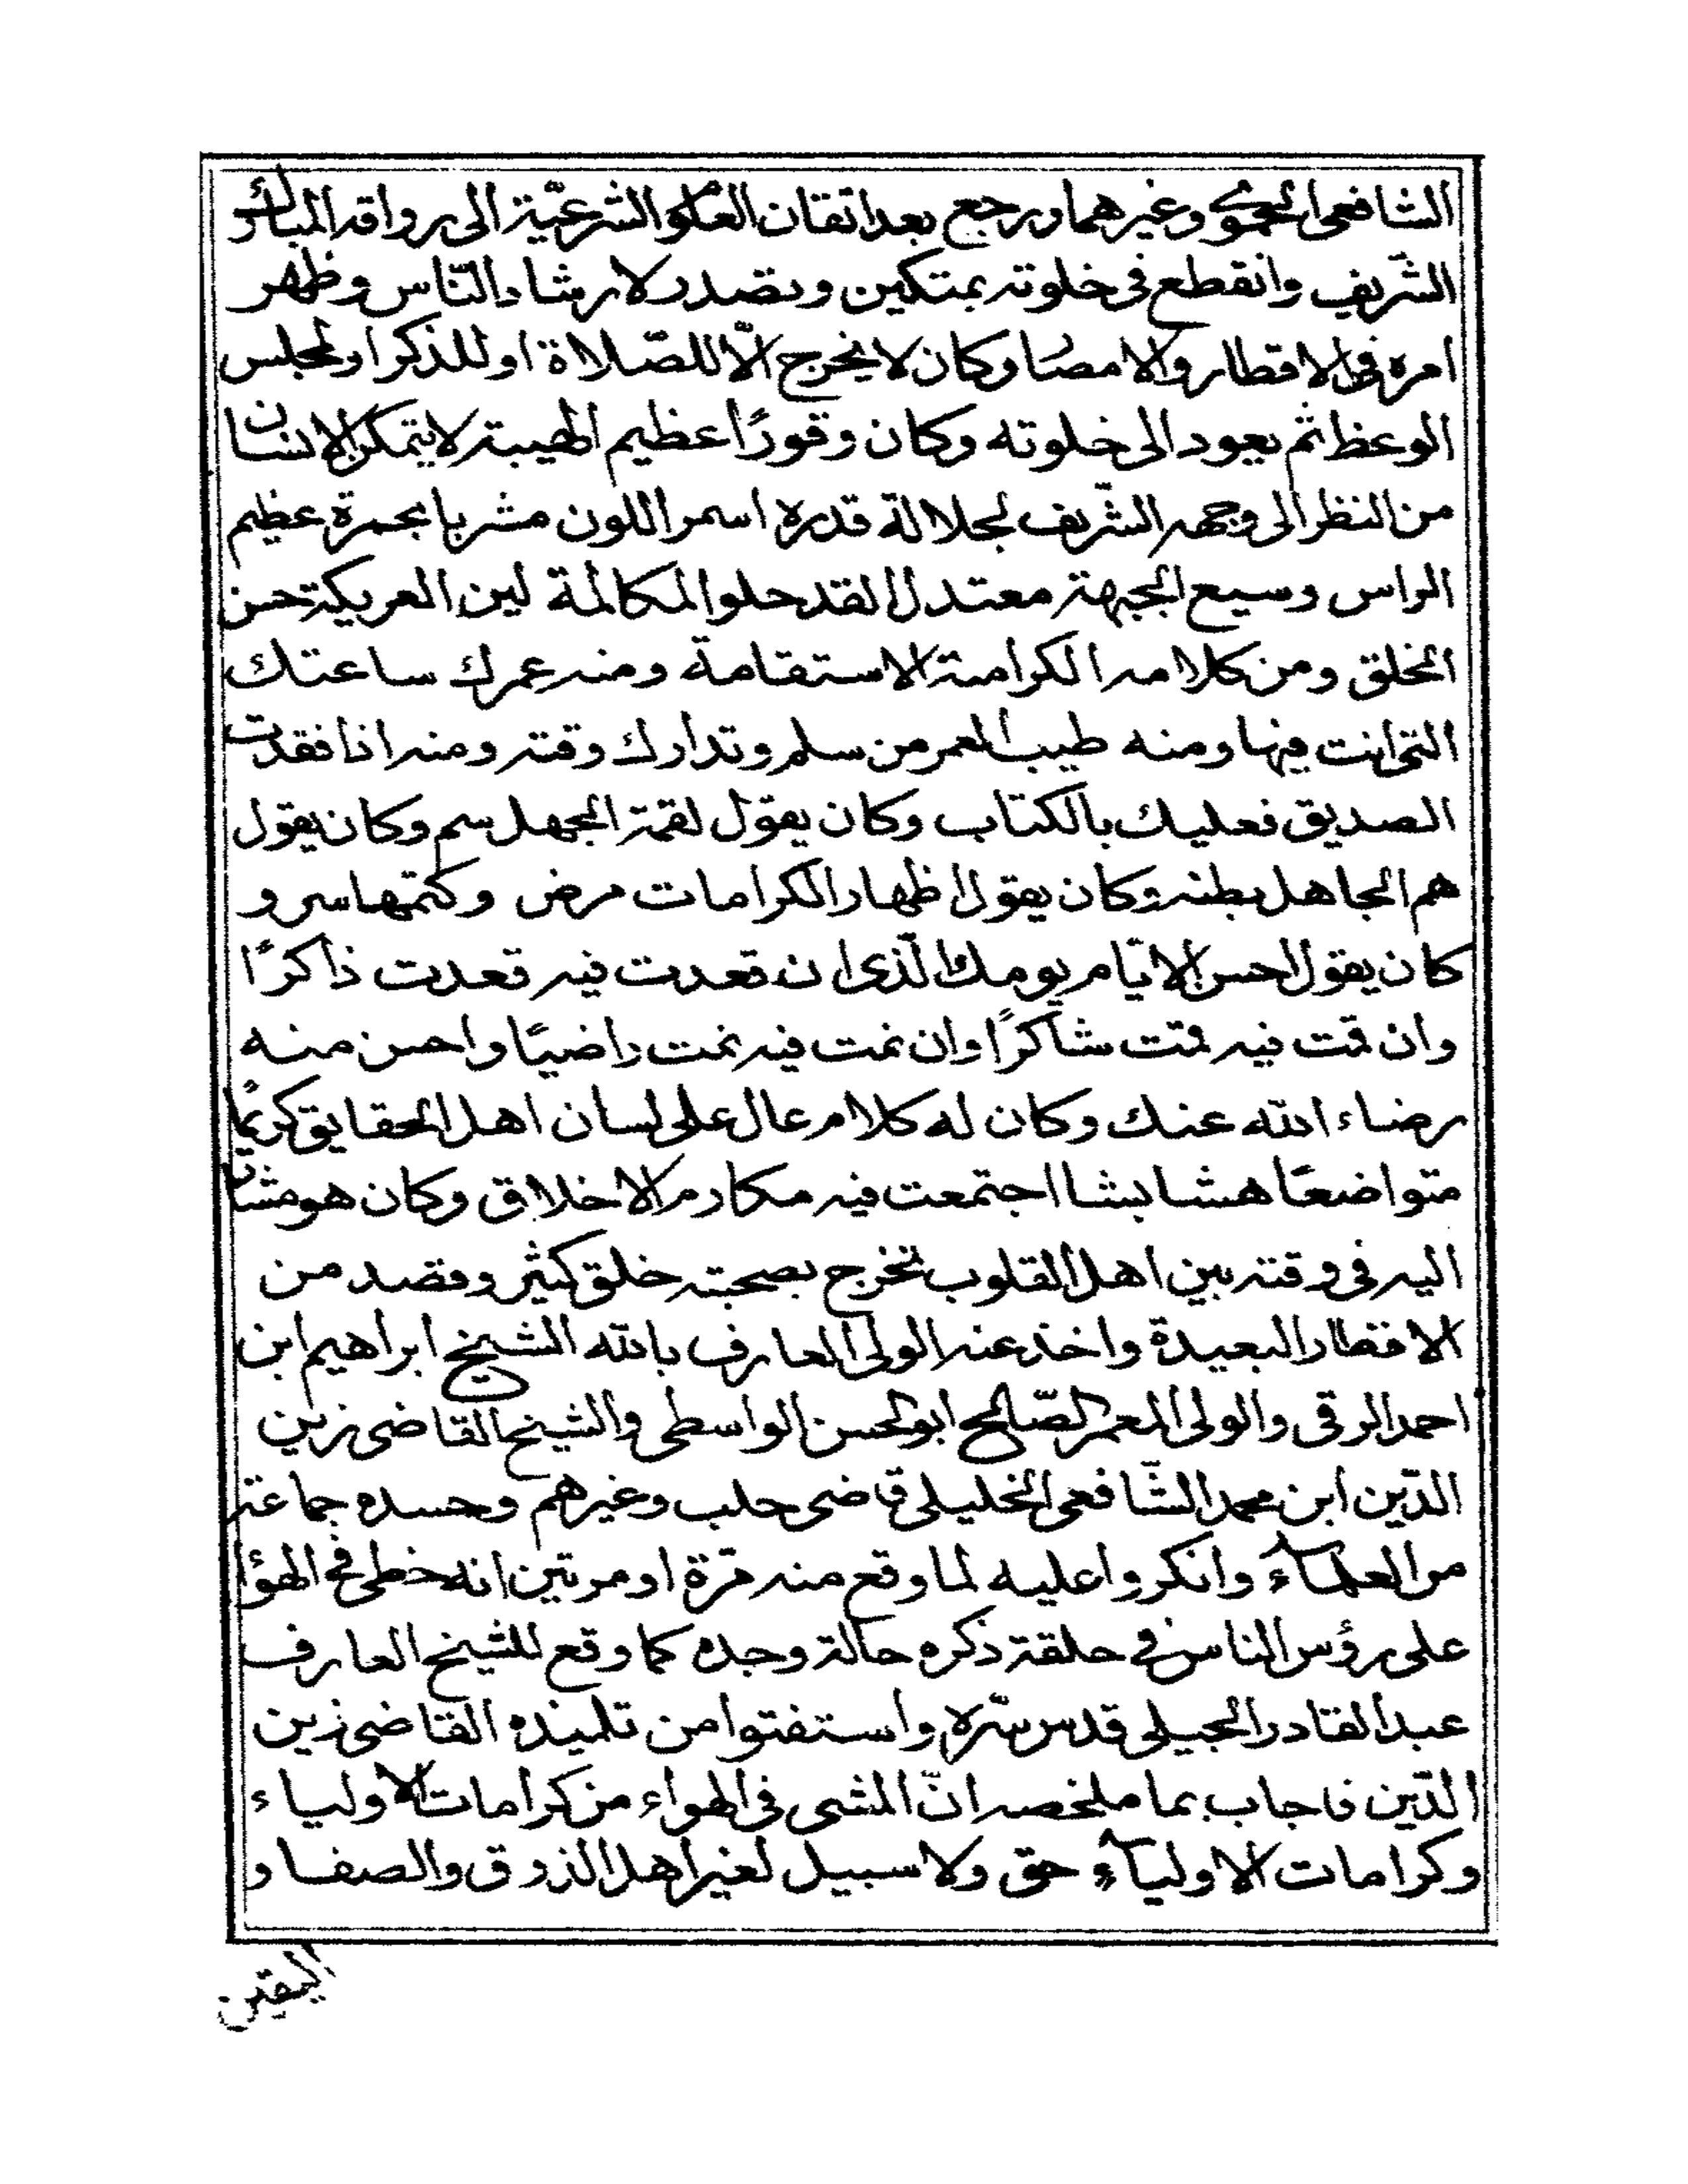 الشافعى الحموى وغيرهما ورجع بعد اتقان العلوم الشرعيّة الى رواقه المبارك
الشريف وانقطع فى خلوته بمتكين وتصدر لارشاد النّاس وظهر
امره فى الاقطار والامصار وكان لا يخرج الّا للصّلاة او للذكر او لمجلس
الوعظ ثم يعود الى خلوته وكان وقورًا عظيم الهيبة لا يتمكن الانسان
من النظر الى وجهه الشّريف لجلالة قدره اسمر اللون مشربا بحمرة عظيم
الراس وسيع الجبهة معتدل القد حلو المكالمة لين العريكة حسن
الخلق ومن كلامه الكرامة الاستقامة ومنه عمرك ساعتك
التى انت فيها ومنه طيب العمر من سلم وتدارك وقته ومنه اذا فقدت
الصديق فعليك بالكتاب وكان يقول لقمة الجهل سم وكان يقول
هم الجاهل بطنه وكان يقول اظهار الكرامات مرض وكتمها سر و
كان يقول احسن الايّام يومك الّذى ان قعدت فيه قعدت ذاكرًا
وان قمت فيه قمت شاكرًا وان نمت فيه نمت راضيًا واحسن منه
رضاء الله عنك وكان له كلام عال على لسان اهل الحقايق كريمًا
متواضعًا هشا بشا اجتمعت فيه مكارم الاخلاق وكان هو مشار
اليه فى وقته بين اهل القلوب تخرج بصحبته خلق كثير وقصد من
الاقطار البعيدة واخذ عنه الولى العارف بالله الشيخ ابراهيم ابن
احمد الرقى والولى المعمر الصّالح ابو الحسن الواسطى والشيخ القاضى زين
الدّين ابن محمد الشّافعى الخليلى قاضى حلب وغيرهم وحسده جماعة
من العلمآء وانكروا عليه لما وقع منه مرّة او مرتين انه خطى فى الهوٓا
على رؤس الناس فى حلقة ذكره حالة وجده كما وقع للشيخ العارف
عبد القادر الجيلى قدس سرّه واستفتوا من تلميذه القاضى زين
الدّين فاجاب بما ملخصه انّ المشى فى الهواء من كرامات الاولياء
وكرامات الاوليآء حق ولا سبيل لغير اهل الذوق والصفا و
اليقين